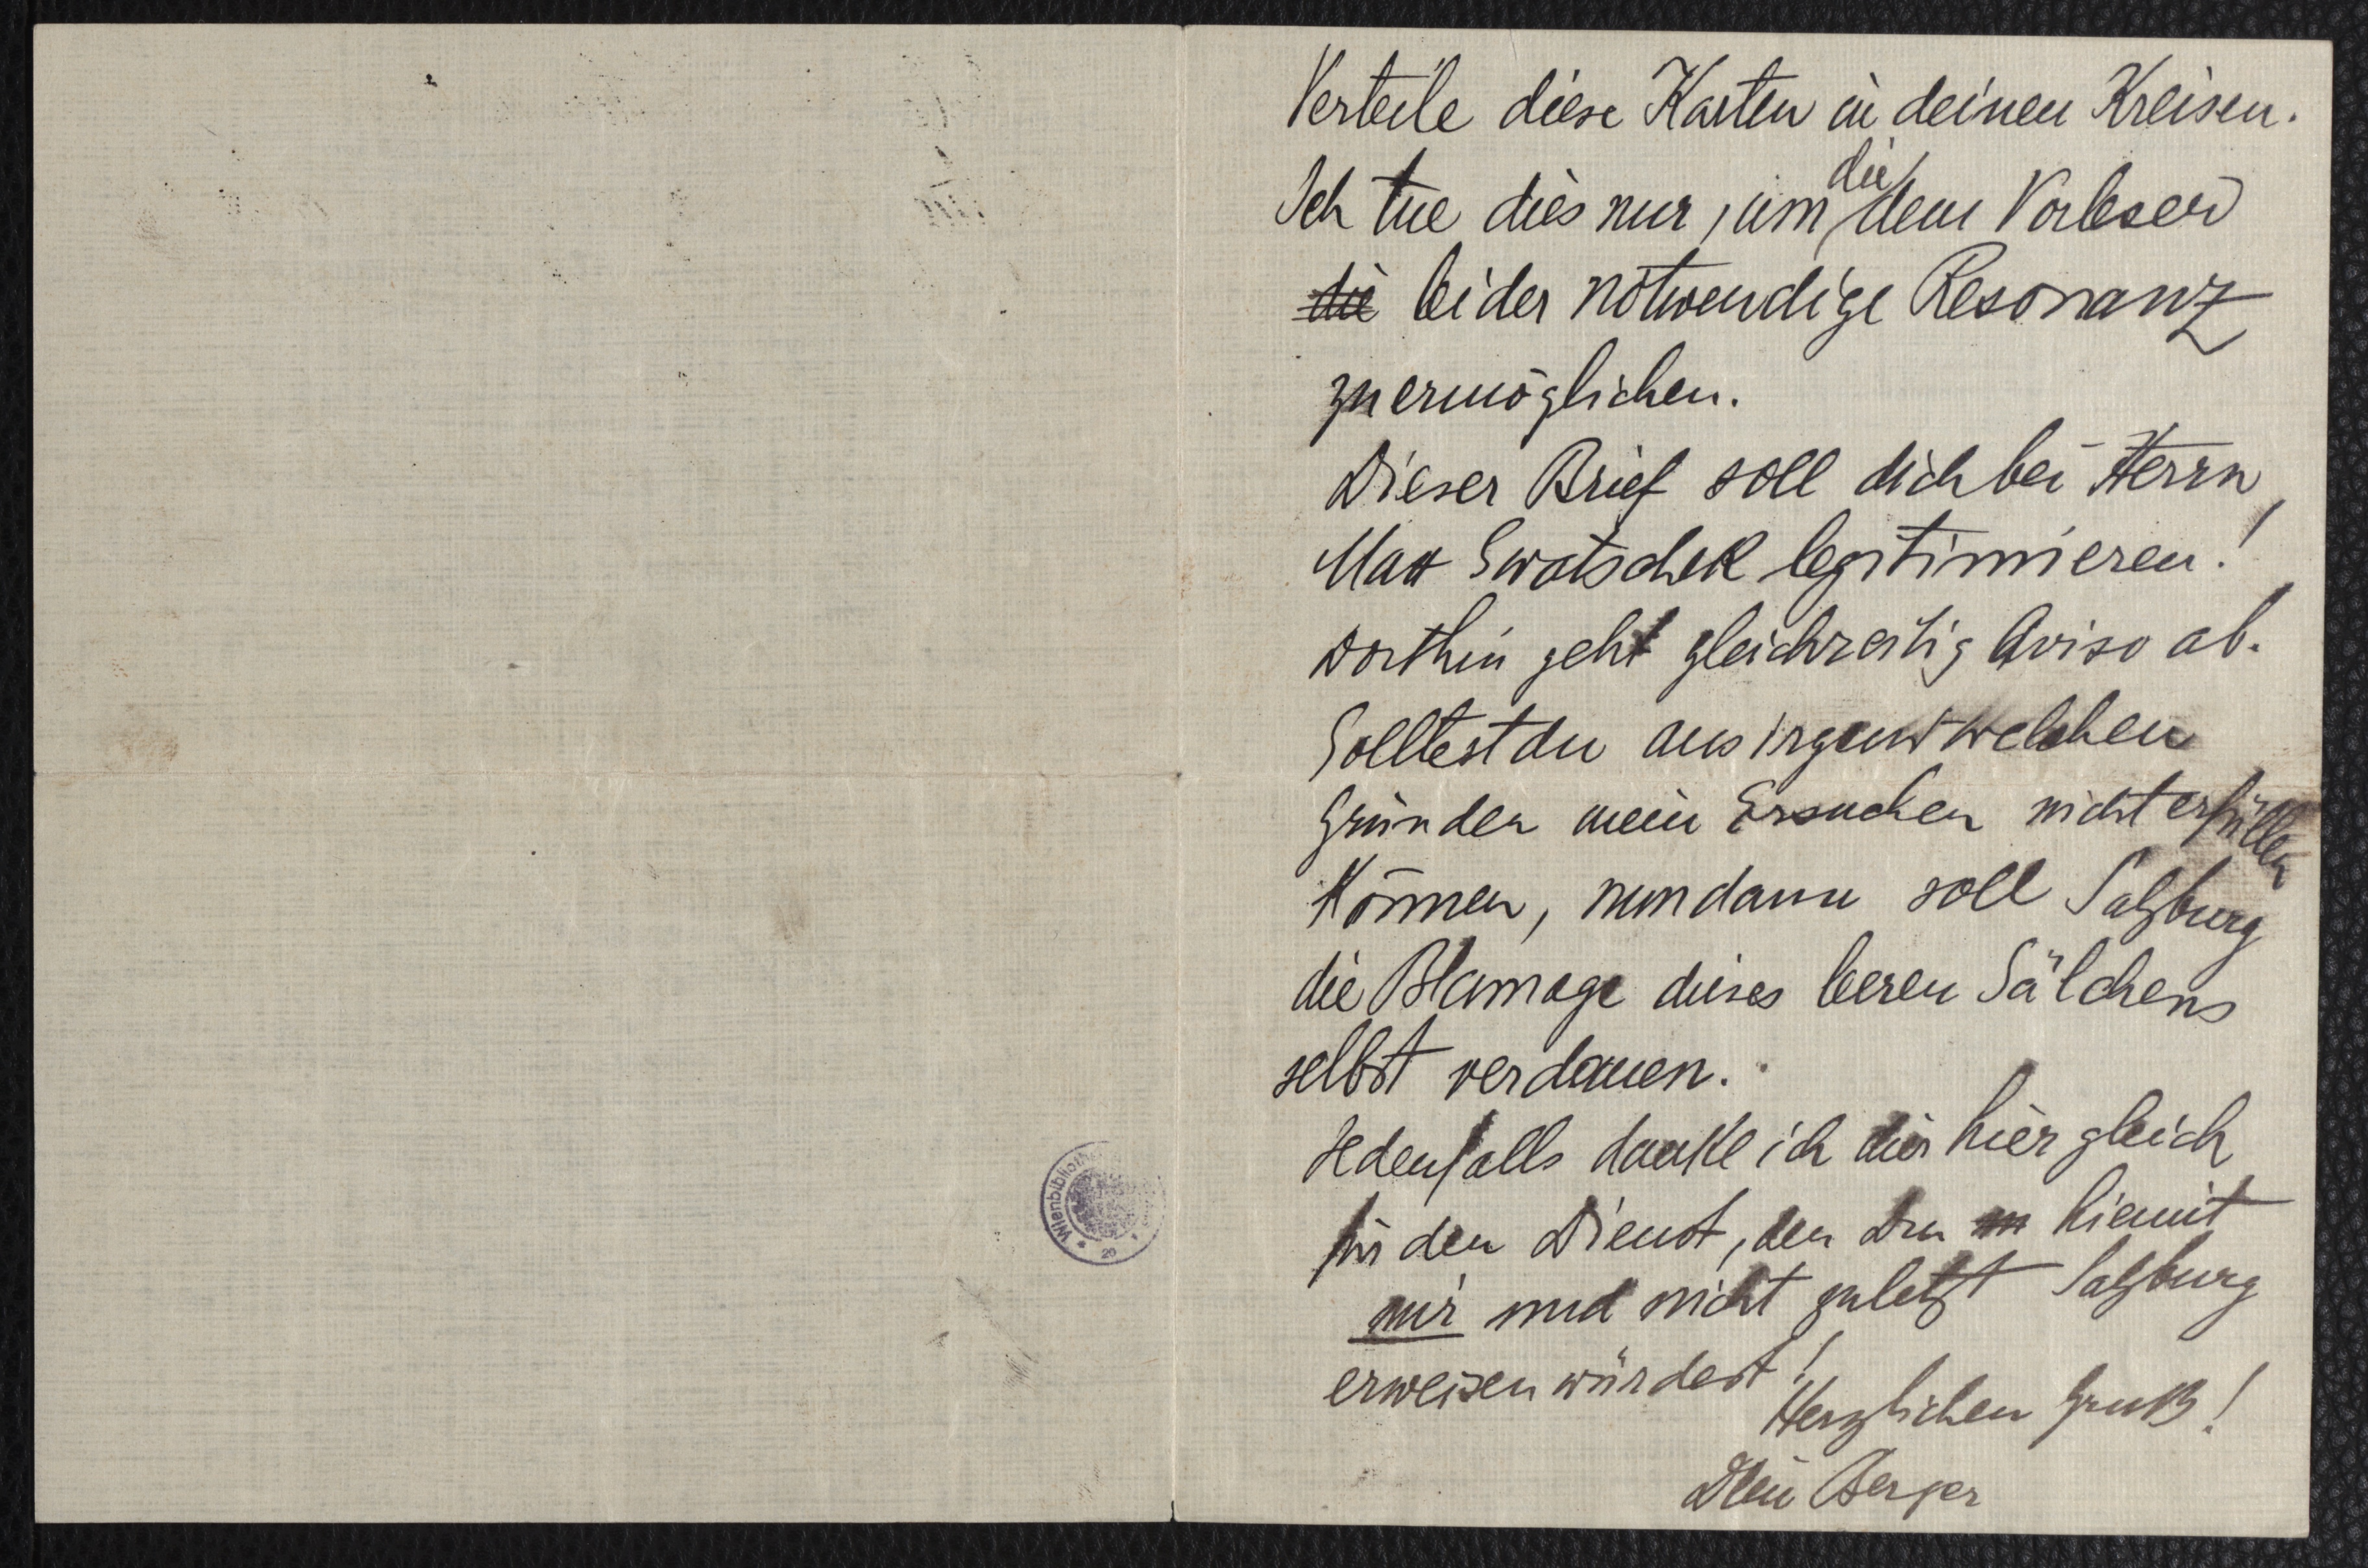 Verteile diese Karten in deinen Kreisen.
Ich tue dies nur, um die dem Vorleser
die leider notwendige Resonanz
zu ermöglichen.
Dieser Brief soll dich bei Herrn
Max Swatschek legitimieren!
Dorthin geht gleichzeitig Aviso ab.
Solltest du aus irgend welchen
Gründen mein Ersuchen nicht erfüllen
Können, nun dann soll Salzburg
die Blamage dieses leeren Sälchens
selbst verdauen.
Jedenfalls danke ich dir hier gleich
für den Dienst, den Du hiemit
mir und nicht zuletzt Salzburg
erweisen würdest!
Herzlichen Gruß!
Dein Berger
Wienbibliothek